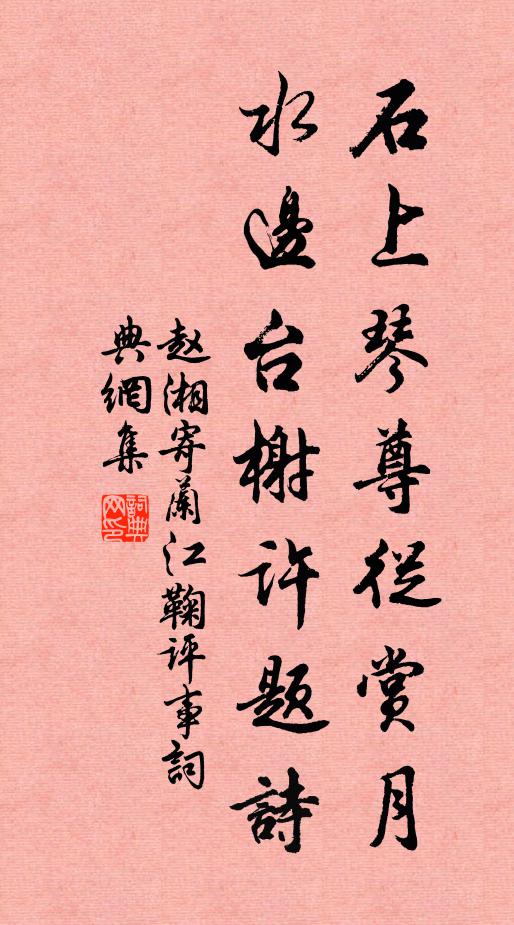 石上琴尊從赏月
水邊台榭许题詩
赵湘寄蘭江鞠评事詞
典網集
詞典
网印